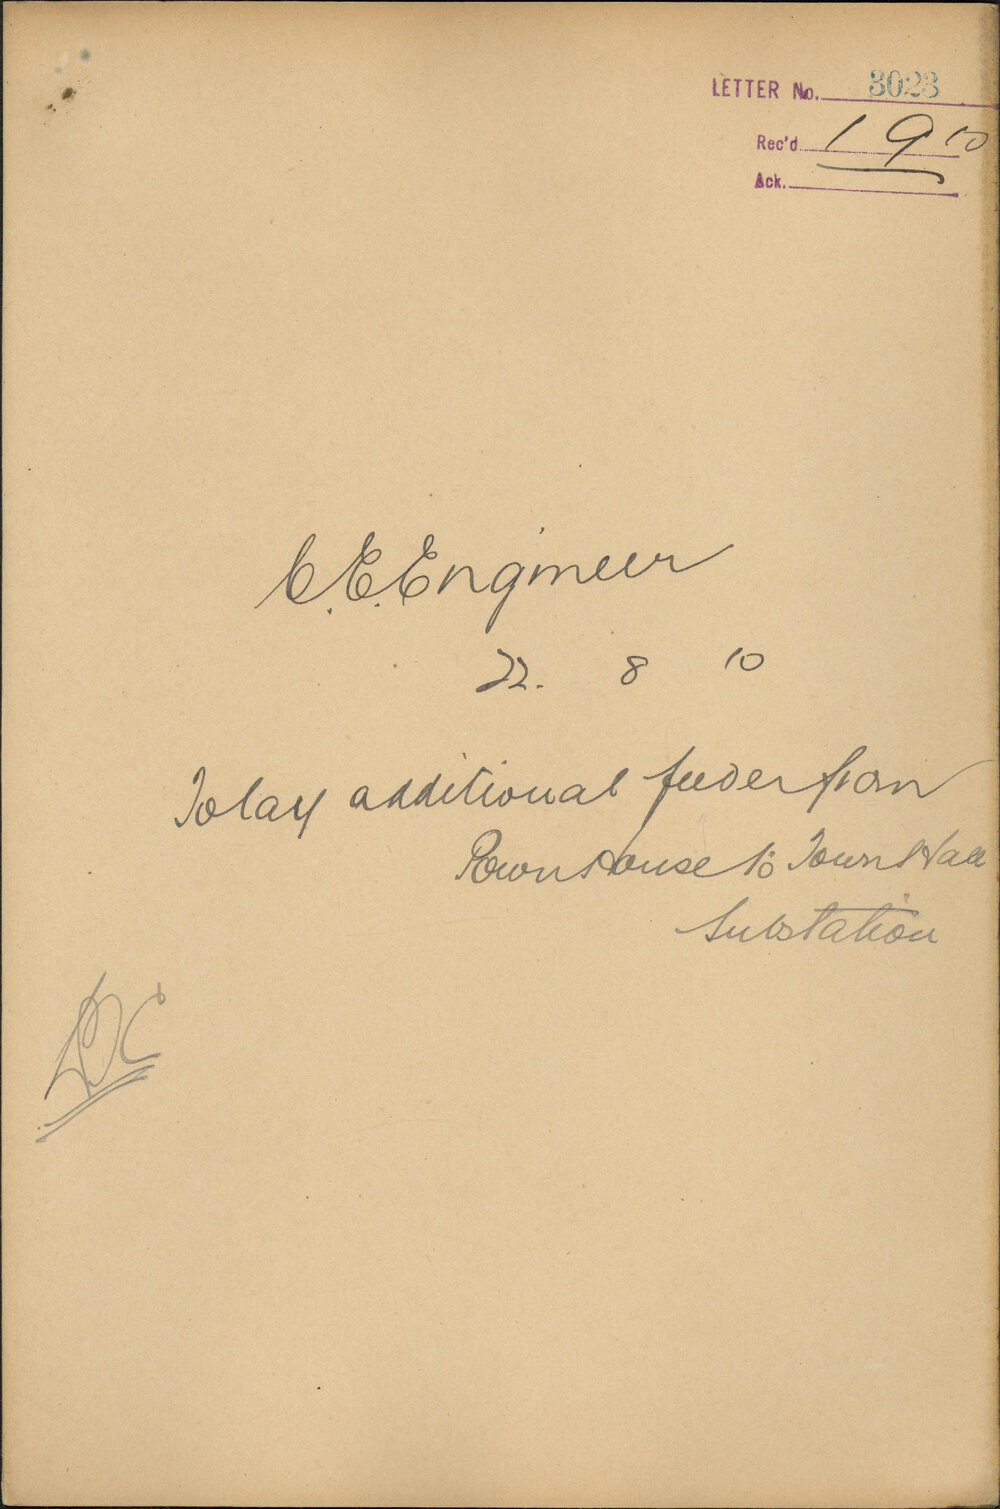 LETTER No. 3023
Rec'd 1 9 10
Ack.
C.E.Engineer
22. 8 10
To lay additional feeder from
Power House to Town Hall
Substation